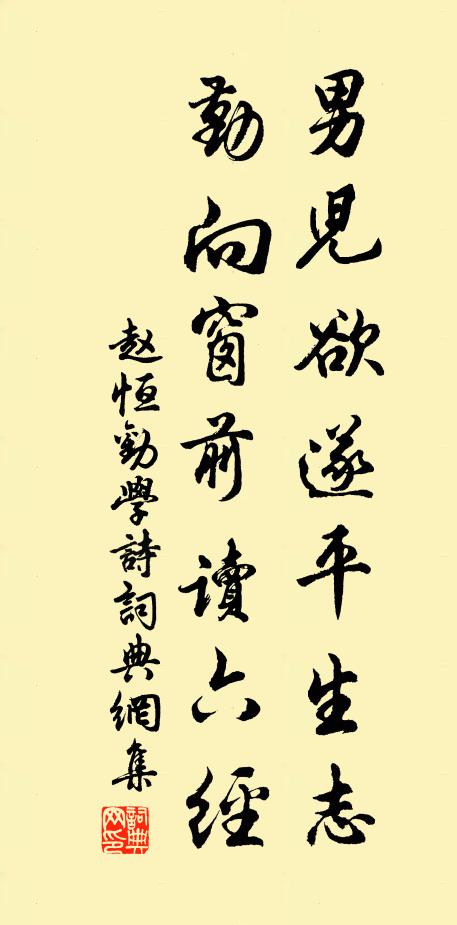 男兒欲遂平生志
勤向窗前讀六經
赵恆勸學詩詞典網集
詞典网印